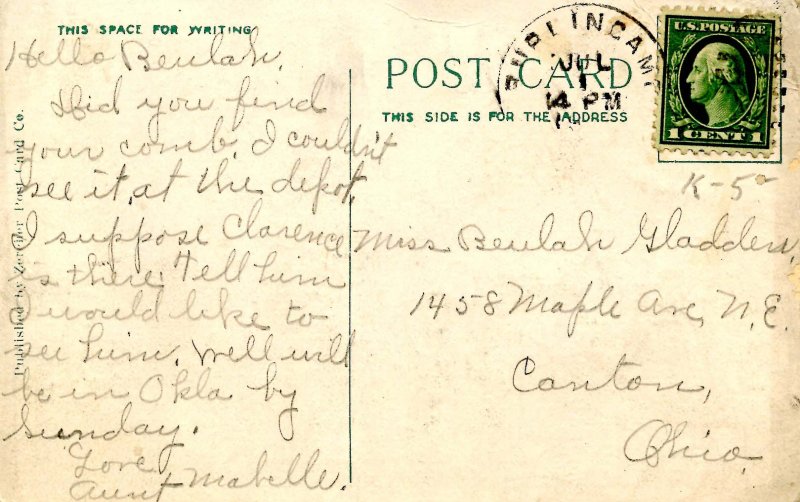 THIS SPACE FOR WRITING
Hello Beulah.
Did you find
your comb, I couldn't
see it, at the depot,
I suppose Clarence
is there. Tell him
I would like to
see him. Well will
be in Okla by
Sunday.
Love
Aunt Mabelle.
Published by Post Card Co.
POST CARD
THIS SIDE IS FOR THE ADDRESS
BURLINGAM
JUL
1
4 PM
U.S. POSTAGE
1 CENT 1
K-5
Miss Beulah Gladden,
1458 Maple Ave, N.E.
Canton,
Ohio.